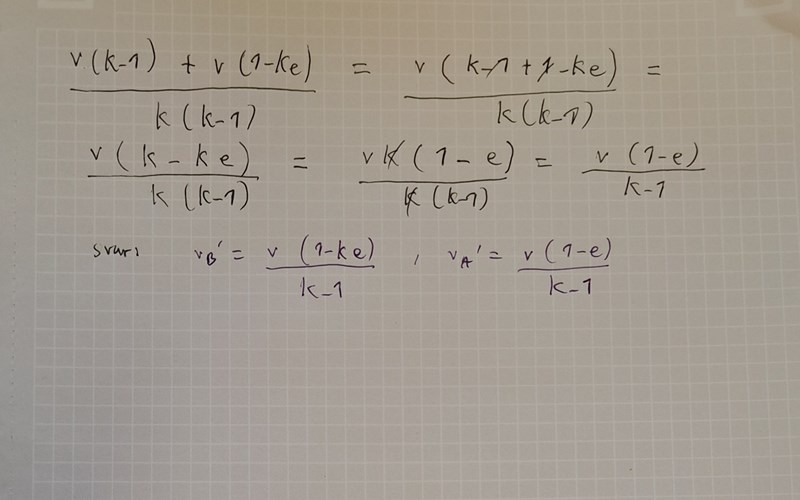 v(k-1) + v(1-ke) / k(k-1) = v(k-1+1-ke) / k(k-1) =
v(k-ke) / k(k-1) = vk(1-e) / k(k-1) = v(1-e) / k-1
svar: v_B' = v(1-ke) / k-1 , v_A' = v(1-e) / k-1